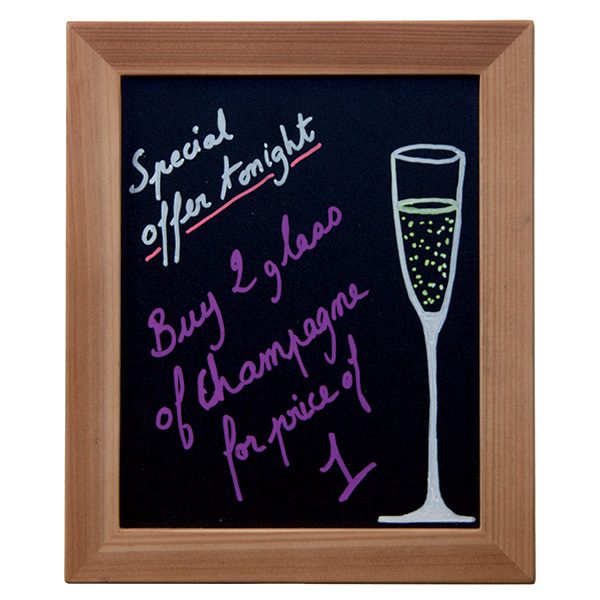 Special
offer tonight
Buy 2 glass
of Champagne
for price of
1